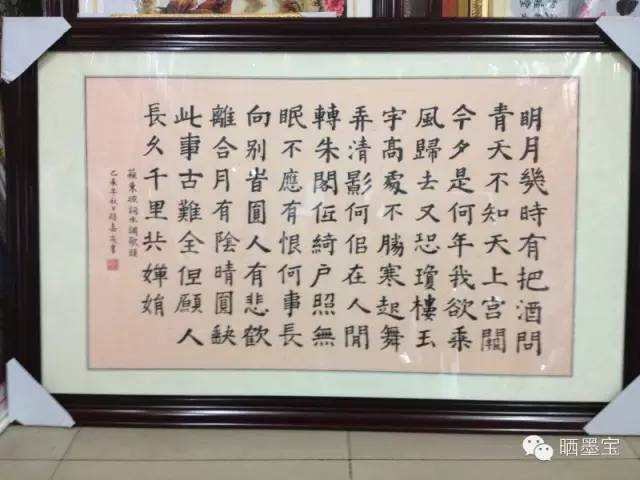 明月幾時有把酒問
青天不知天上宮闕
今夕是何年我欲乘
風歸去又恐瓊樓玉
宇高處不勝寒起舞
弄清影何佀在人間
轉朱閣低綺户照無
眠不應有恨何事長
向别旹圓人有悲歡
離合月有陰晴圓缺
此事古難全但願人
長久千里共嬋娟
蘇東坡詞水調歌頭
乙未年秋
晒墨宝